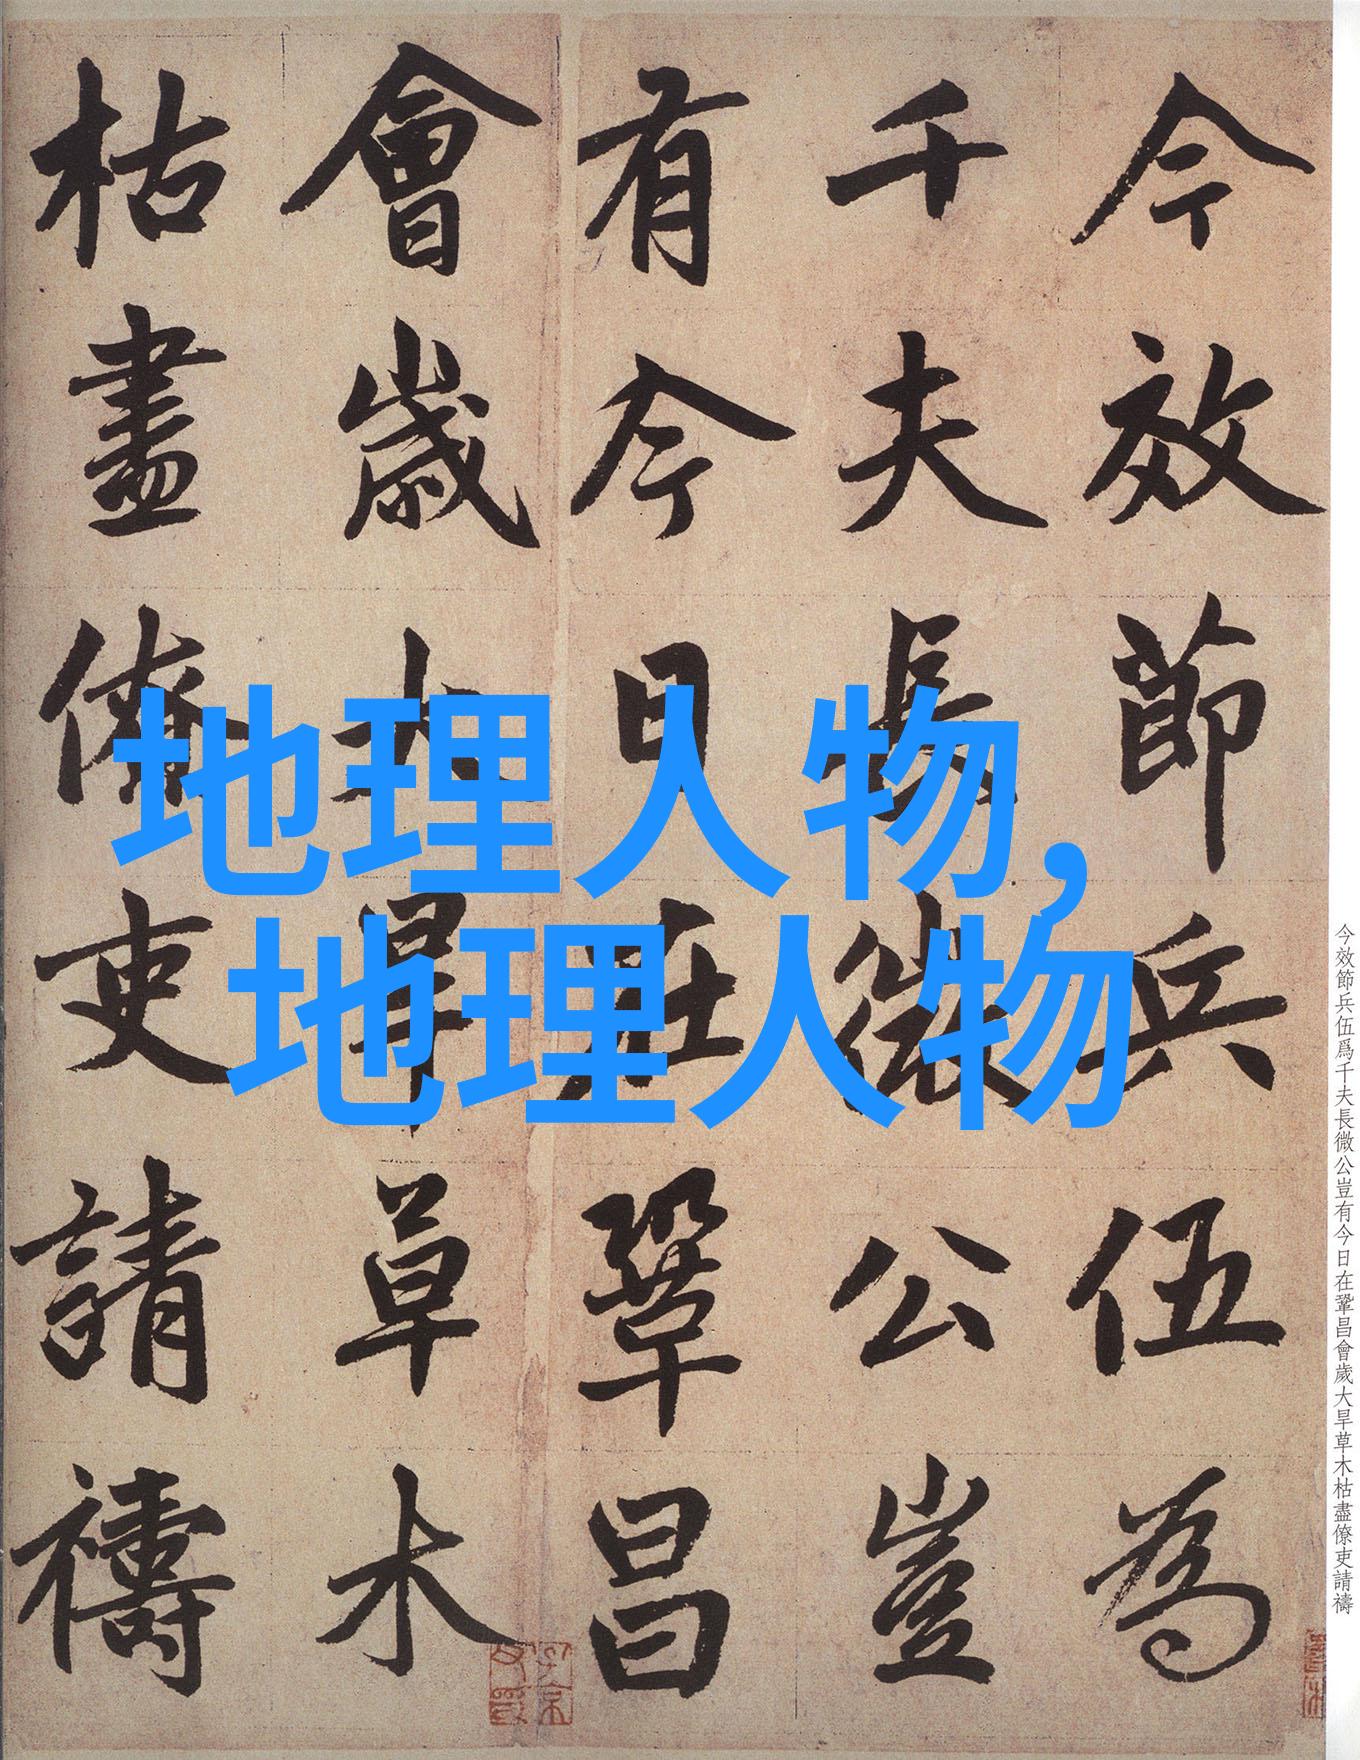 今效節兵伍為
千夫長微公豈
有今日在鞏昌
會歲大旱草木
枯盡僚吏請禱
地理人物，
地理人物
今效節兵伍爲千夫長微公豈有今日在鞏昌會歲大旱草木枯盡僚吏請禱